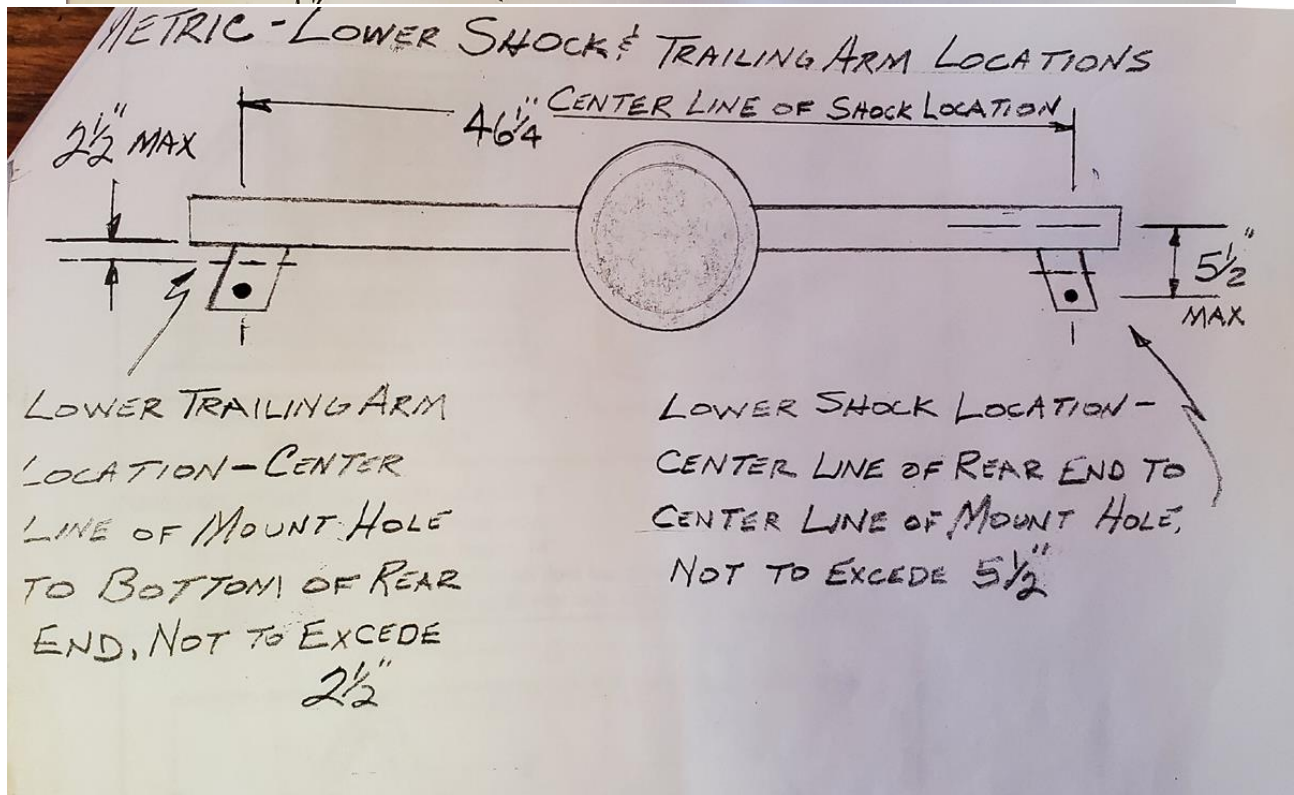 METRIC - LOWER SHOCK & TRAILING ARM LOCATIONS
46 1/4" CENTER LINE OF SHOCK LOCATION
2 1/2" MAX
5 1/2"
MAX
LOWER TRAILING ARM
LOCATION - CENTER
LINE OF MOUNT HOLE
TO BOTTOM OF REAR
END, NOT TO EXCEDE
2 1/2"
LOWER SHOCK LOCATION -
CENTER LINE OF REAR END TO
CENTER LINE OF MOUNT HOLE,
NOT TO EXCEDE 5 1/2"